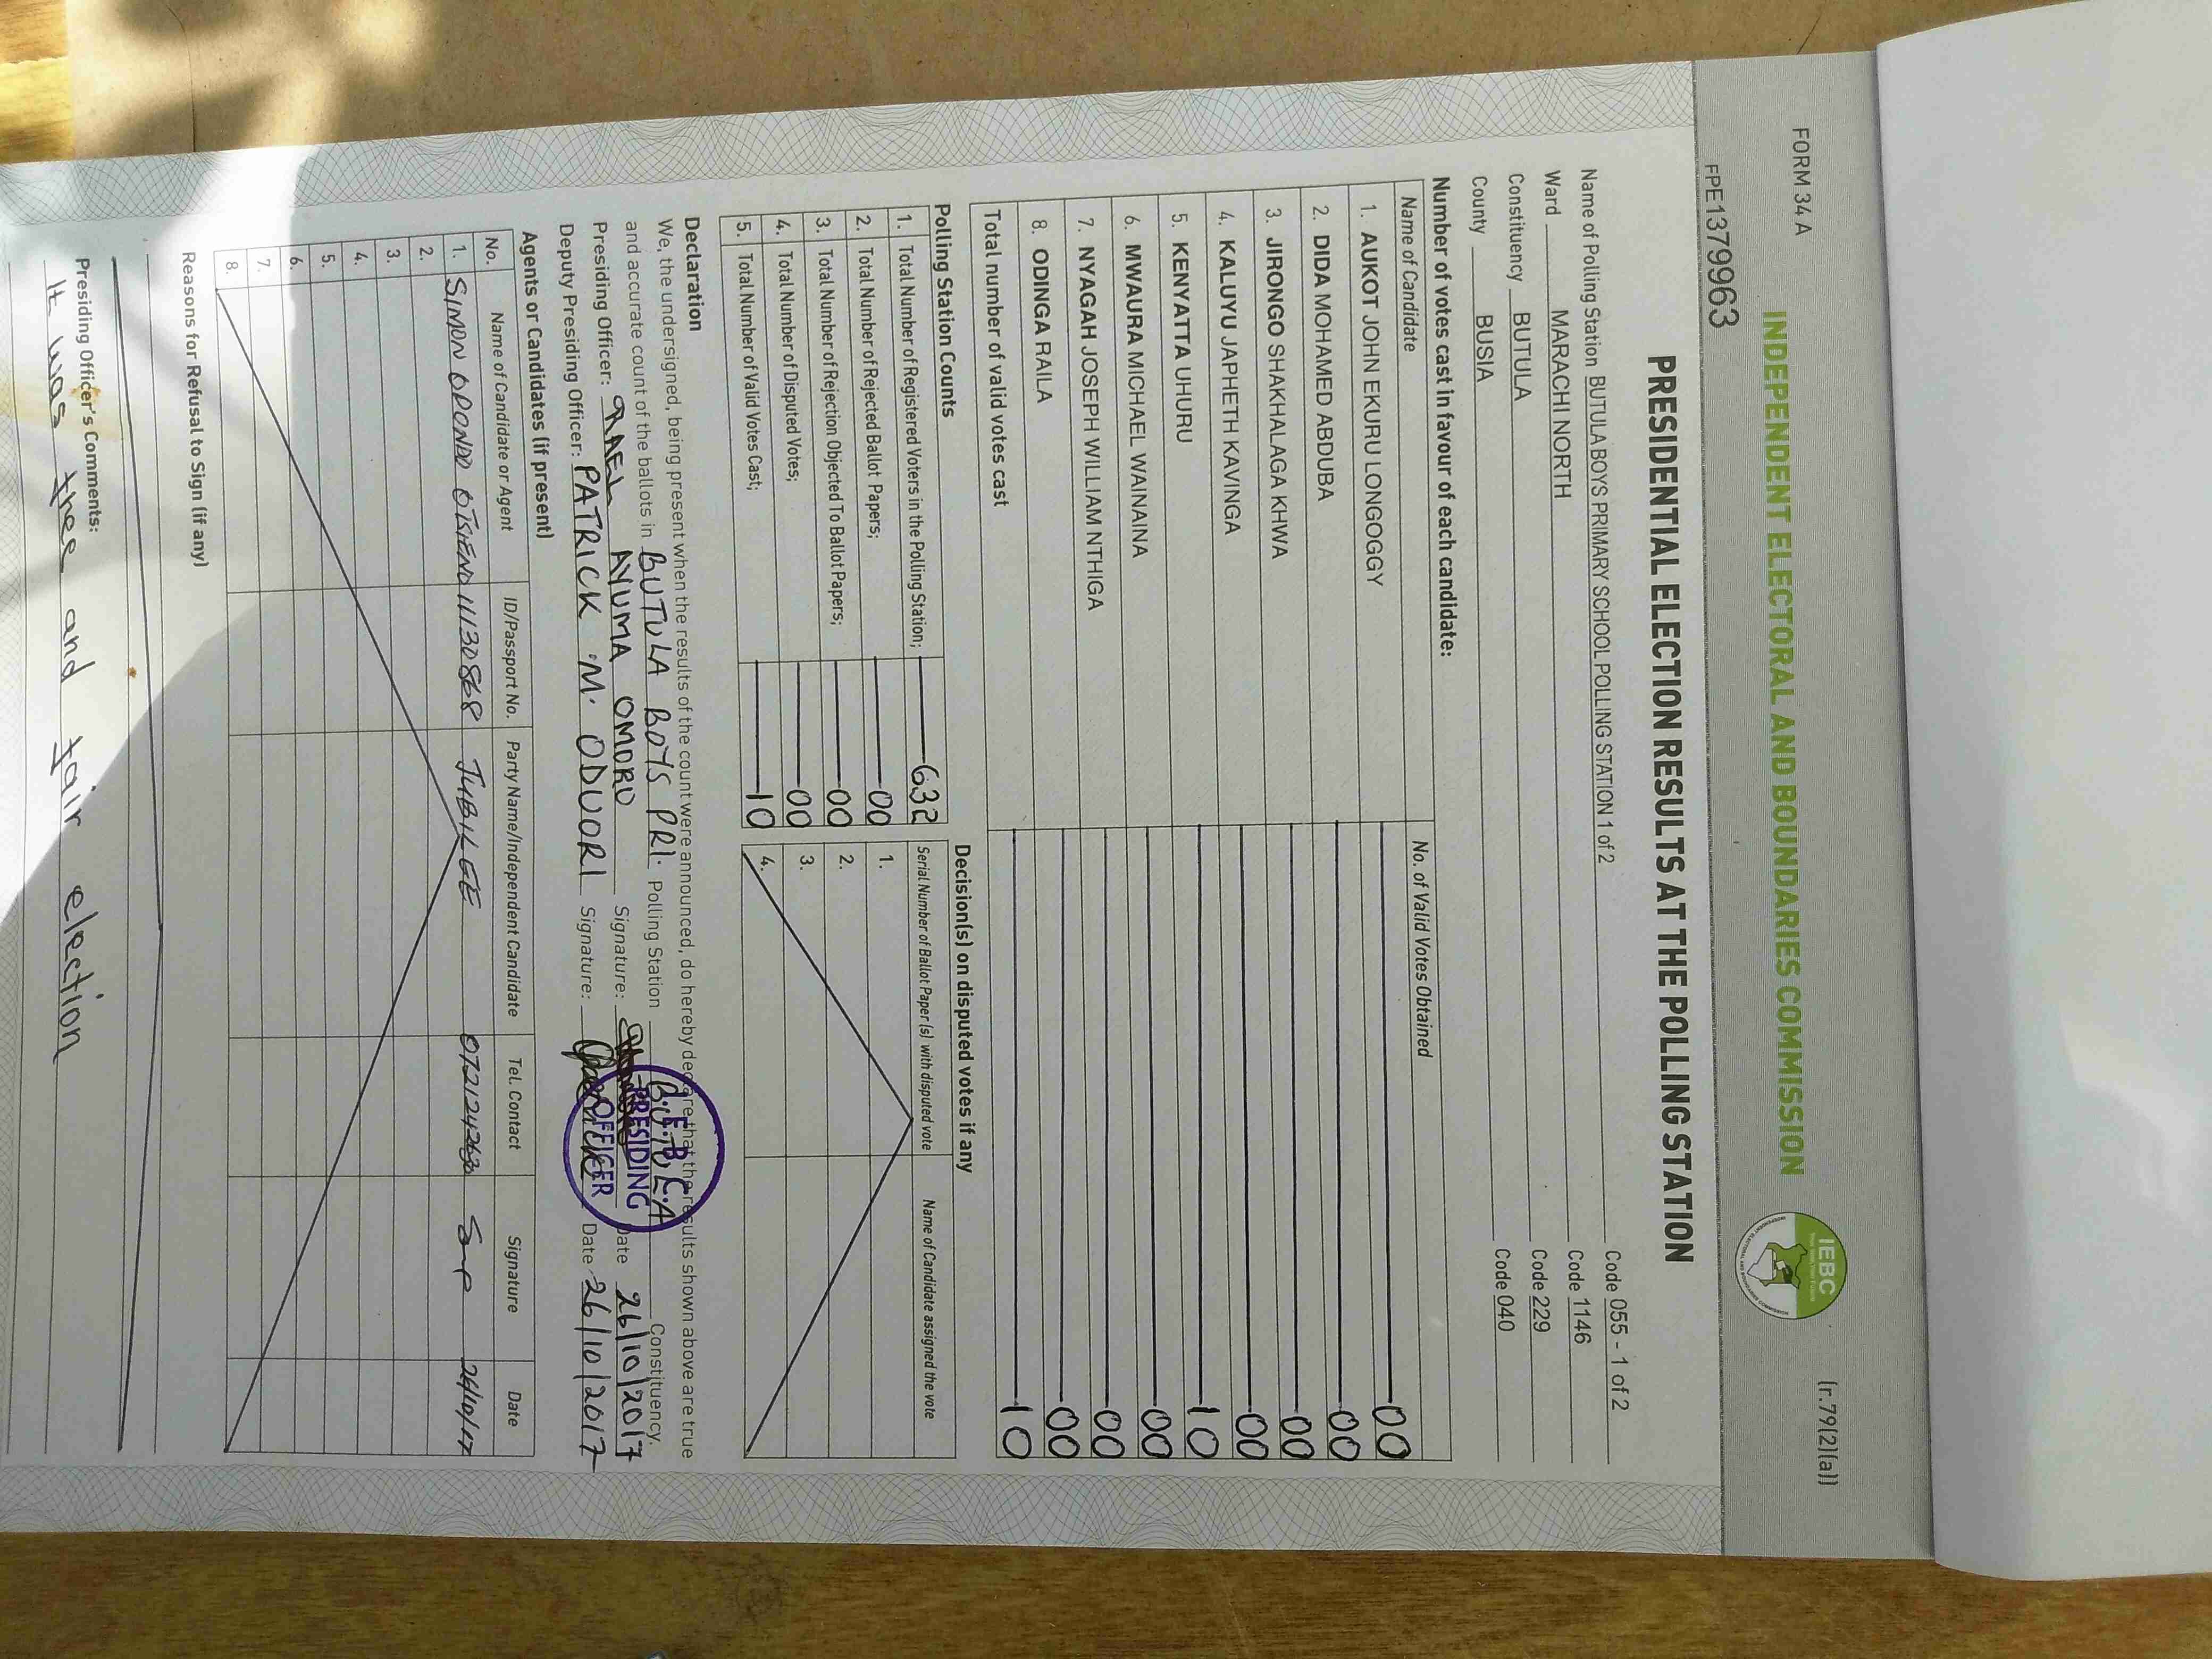 FORM 34 A
(r.79(2)(a))
INDEPENDENT ELECTORAL AND BOUNDARIES COMMISSION
IEBC
FPE1379963
PRESIDENTIAL ELECTION RESULTS AT THE POLLING STATION
Name of Polling Station BUTULA BOYS PRIMARY SCHOOL POLLING STATION 1 of 2 Code 055 - 1 of 2
Ward MARACHI NORTH Code 1146
Constituency BUTULA Code 229
County BUSIA Code 040
Number of votes cast in favour of each candidate:
Name of Candidate No. of Valid Votes Obtained
1. AUKOT JOHN EKURU LONGOGGY 00
2. DIDA MOHAMED ABDUBA 00
3. JIRONGO SHAKHALAGA KHWA 00
4. KALUYU JAPHETH KAVINGA 00
5. KENYATTA UHURU 10
6. MWAURA MICHAEL WAINAINA 00
7. NYAGAH JOSEPH WILLIAM NTHIGA 00
8. ODINGA RAILA 00
Total number of valid votes cast 10
Polling Station Counts
1. Total Number of Registered Voters in the Polling Station; 632
2. Total Number of Rejected Ballot Papers; 00
3. Total Number of Rejection Objected To Ballot Papers; 00
4. Total Number of Disputed Votes; 00
5. Total Number of Valid Votes Cast; 10
Decision(s) on disputed votes if any
Serial Number of Ballot Paper (s) with disputed vote Name of Candidate assigned the vote
1.
2.
3.
4.
Declaration
We, the undersigned, being present when the results of the count were announced, do hereby declare that the results shown above are true
and accurate count of the ballots in BUTULA BOYS PRI. Polling Station BUTULA Constituency.
Presiding Officer: AYUMA OMORO Signature: Date 26/10/2017
Deputy Presiding Officer: PATRICK M. ODUORI Signature: Date 26/10/2017
PRESIDING
OFFICER
Agents or Candidates (if present)
No. Name of Candidate or Agent ID/Passport No. Party Name/Independent Candidate Tel. Contact Signature Date
1. SIMON OPONDO 11130868 JUBILEE 26/10/17
2.
3.
4.
5.
6.
7.
8.
Reasons for Refusal to Sign (if any)
Presiding Officer's Comments:
It was free and fair election